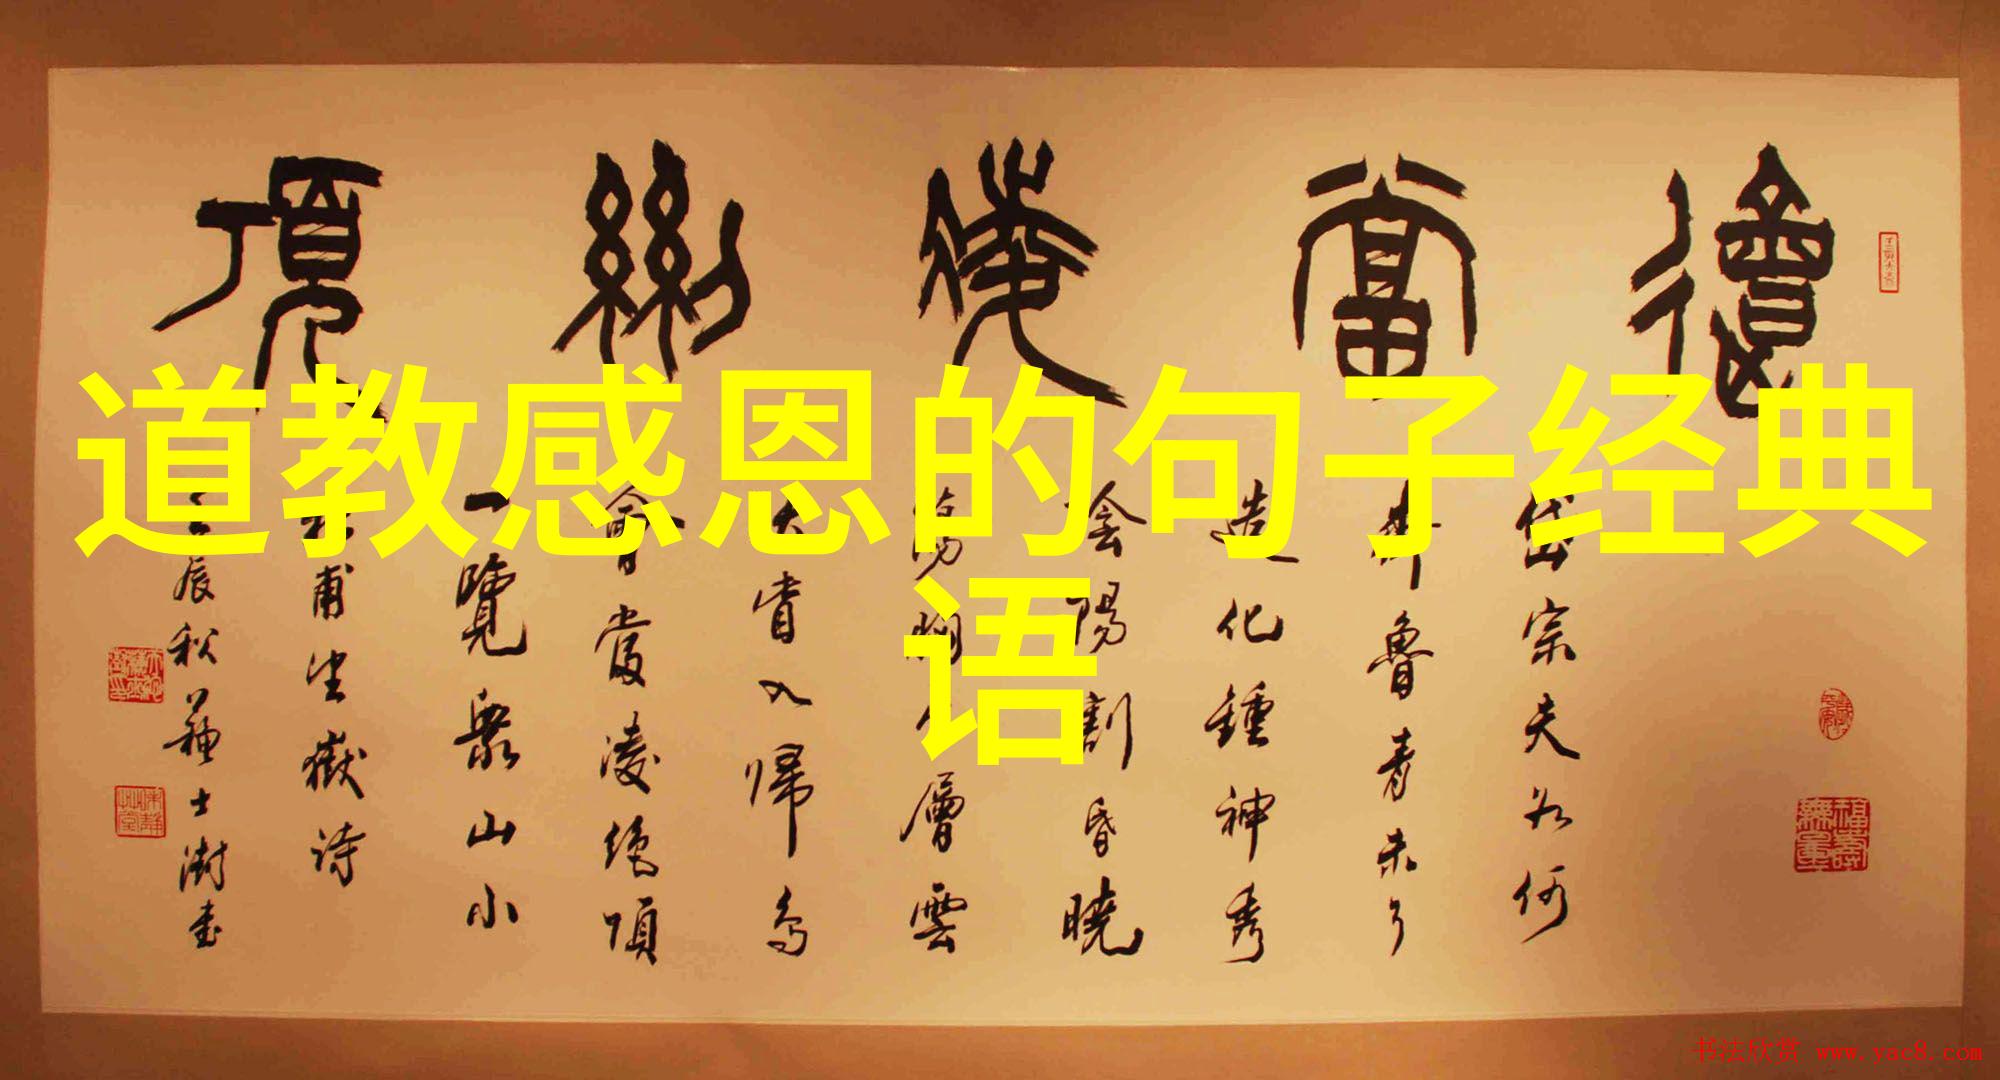 道教感恩的句子经典
语
會當凌絕頂
岱宗夫如何
齊魯青未了
造化鍾神秀
陰陽割昏曉
蕩胸生層雲
決眥入歸鳥
會當凌絕頂
一覽眾山小
杜甫望嶽詩
壬辰秋蘇士澍書
福壽無量
书法欣赏 www.yac8.com